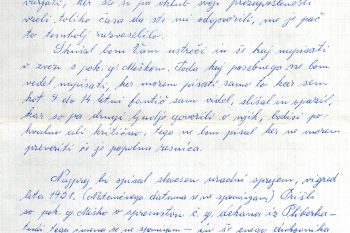 verjeti, ker ste si pa vkljub svoji prezaposlenosti
vzeli toliko časa da ste mi odgovorili, me je pač
še tembolj razveselilo.
Skušal bom Vam ustreči in še kaj napisati
v zvezi s pok. g. Meškom, toda kaj posebnega ne bom
vedel napisati, ker morem pisati samo to kar sem
kot 9 do 14 letni fantič sam videl, slišal in opazil,
kar so pa drugi ljudje govorili o njih, bodisi po-
hvalno ali kritično, tega ne bom pisal ker ne morem
preveriti če je popolna resnica.
Najprej bi opisal slovesen uradni sprejem, sigred
leta 1921. (Natančnega datuma se ne spominjam) Prišli
so pok. g. Meško v spremstvu č. g. dekana iz Pliberka-
tudi tega imena se ne spominjam - in še enega duhovnika